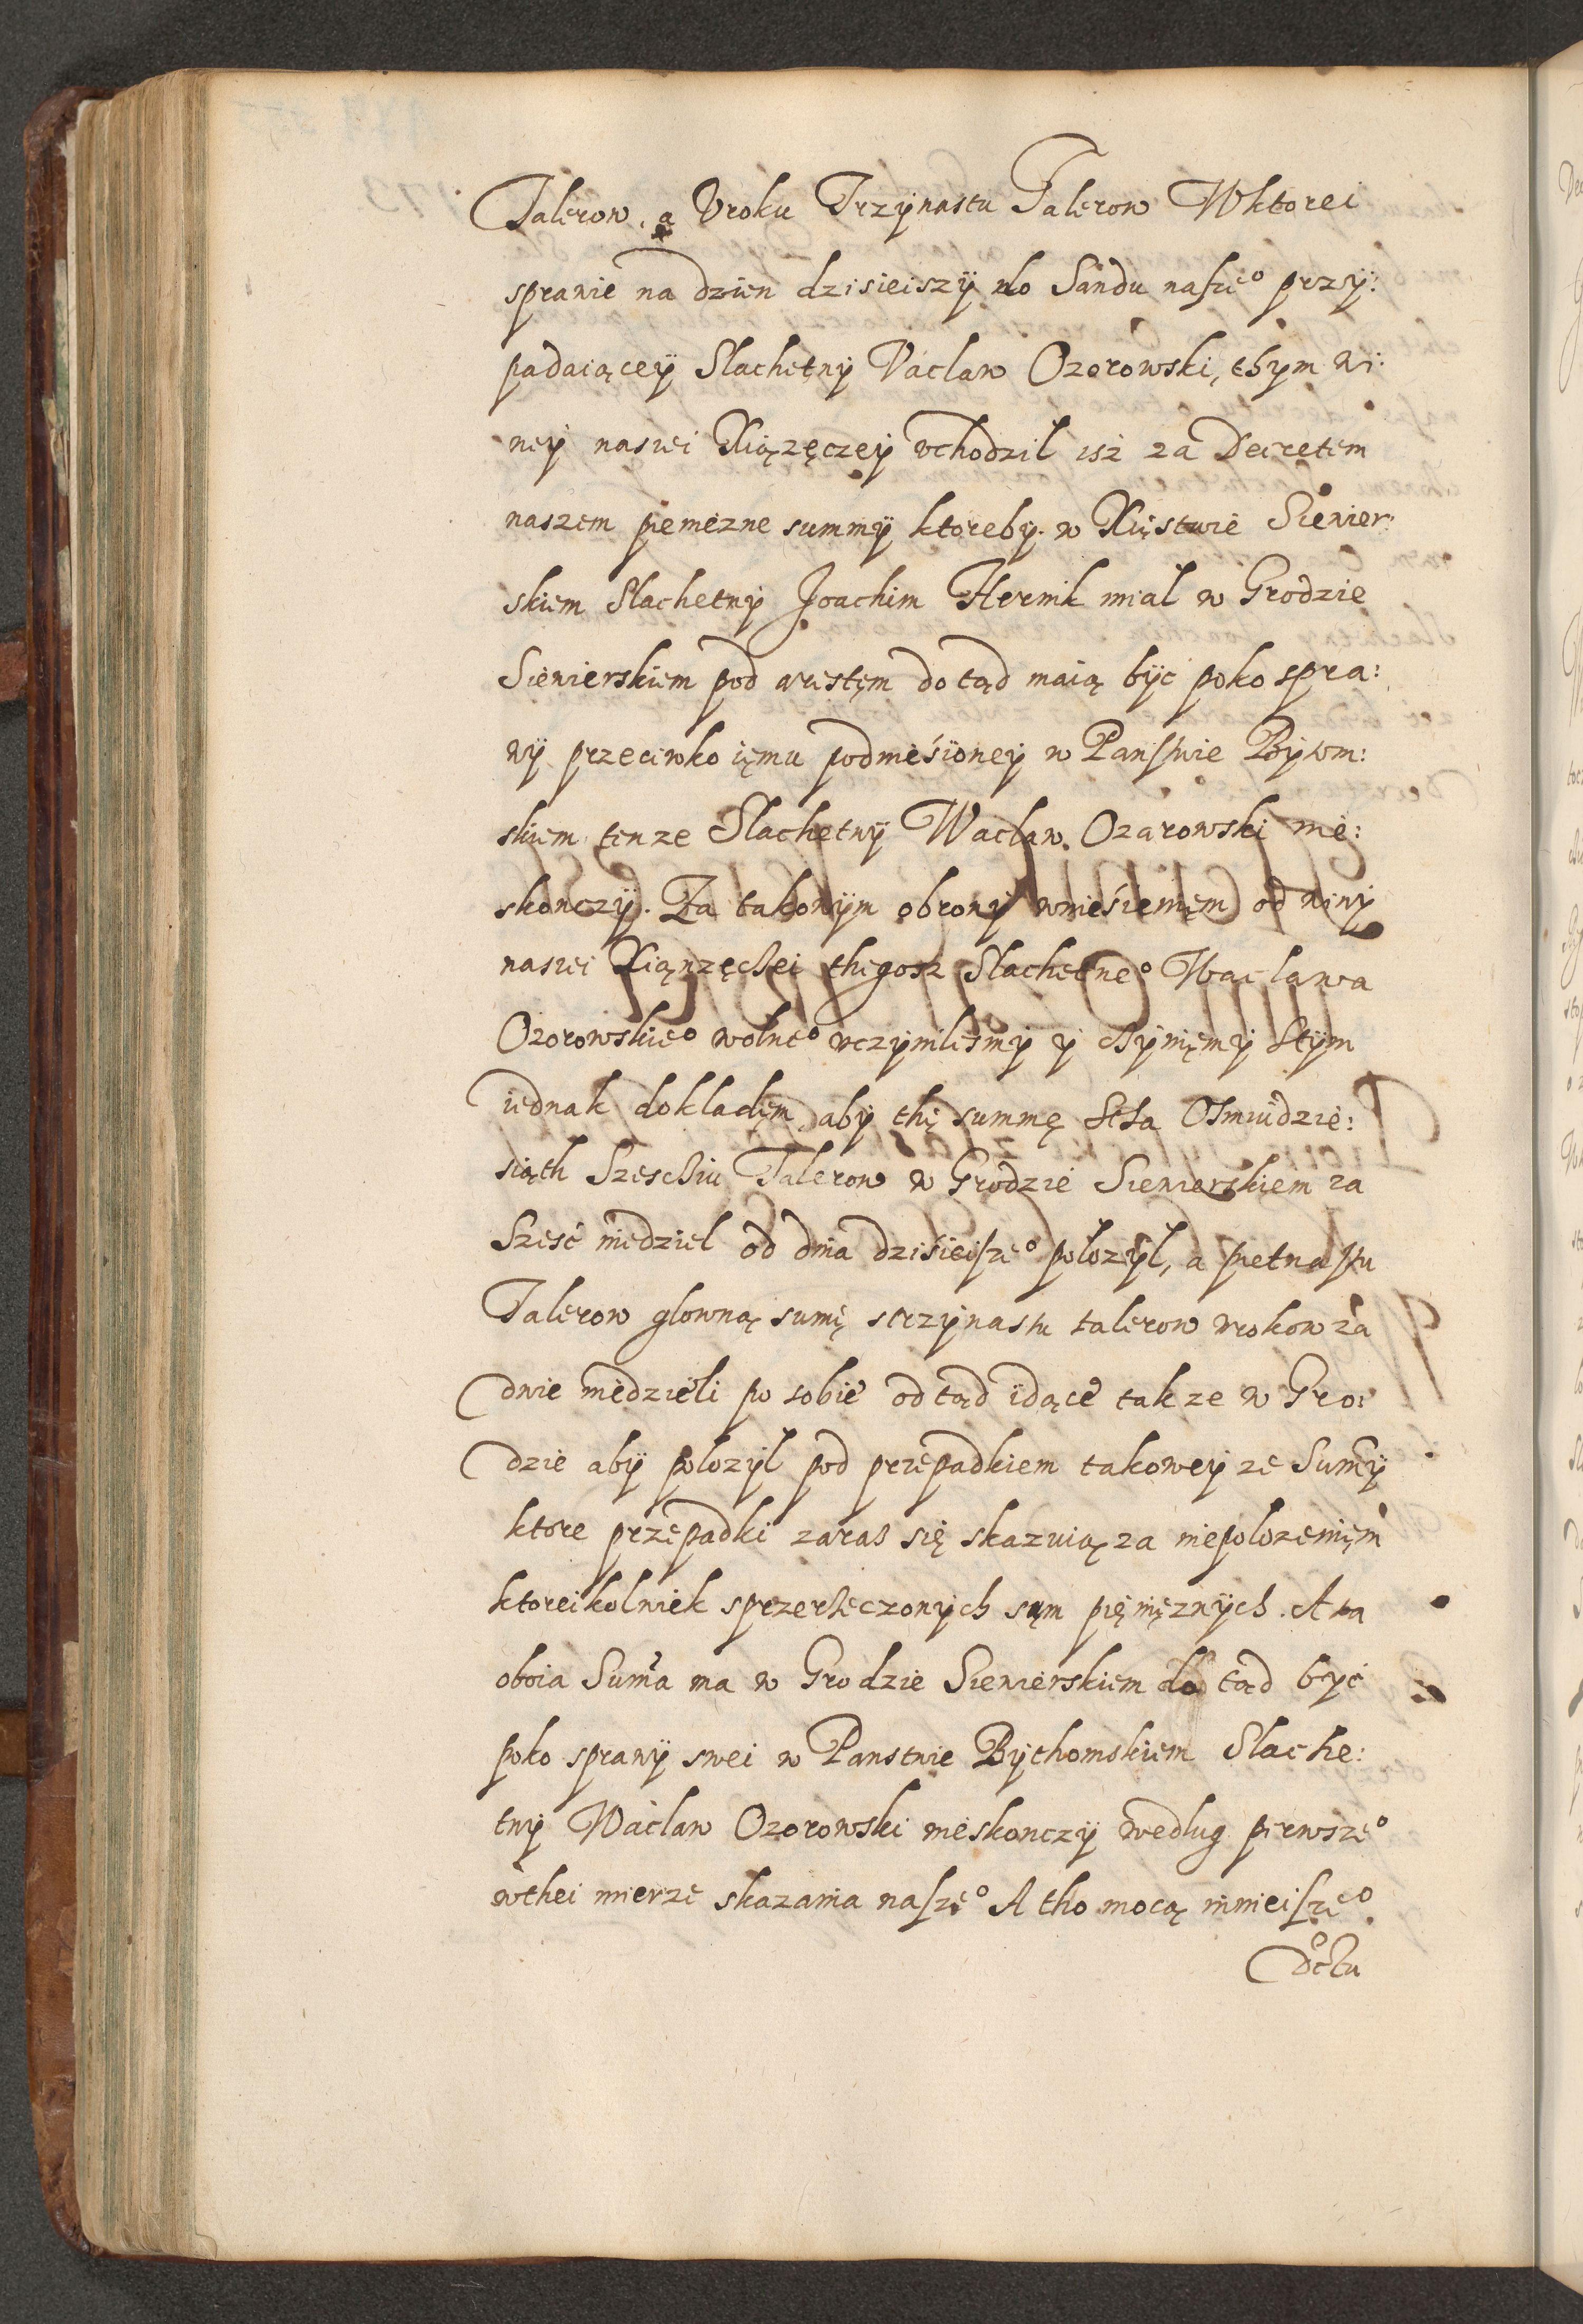 Talerow, a Vroku Trzÿnastu Talerow Wktorei
sprawie na dzien dzisieiszÿ do Sandu nasze° przÿ:
padaiąceÿ Slachetnÿ Vaclaw Ozorowski, thym wi:
neÿ naszei Xiązęczeÿ vchodzil isz za Decretem
naszem pieniezne summÿ ktoreby w Xięstwie Siewier:
skiem Slachetnÿ Joachim Hernik mial w Grodzie
Siewierskiem pod arestęm do tąd maią bÿc poko spra:
wÿ przeciwko iemu podniesioneÿ w Panstwie Bytom:
skiem tenze Slachetnÿ Waclaw Ozarowski nie:
skonczÿ. Za takowÿm obronÿ wniesieniem od winÿ
naszei Xiąnzęczei thegosz Slachetne° Waclawa
Ozorowskie° wolne° vczÿnilismÿ ÿ czÿnięmÿ stÿm
iednak dokladęm, abÿ thę summę Sta Osmiudzie:
siąth Szescziu Talerow w Grodzie Siewierskiem za
Szesć niedziel od dnia dzisieisze° polozÿl, a pietnastu
Talerow glowną sumę strzÿnastu talerow wrokow za
dwie niedzieli po sobie od tąd idące takze w Gro:
dzie abÿ polozÿl pod przepadkiem takoweÿ ze Sumÿ
ktore przepadki zaras się skazuią za niepolozenięm
ktoreikolwiek sprzerzeczonÿch sum pięnięznÿch. A ta
oboia Suma ma w Grodzie Siewierskiem do tąd bÿć
poko sprawÿ swei w Panstwie Bÿthomskiem Slache:
tnÿ Waclaw Ozorowski nieskonczÿ według pierwsze°
wthei mierze skazania nasze° A tho mocą ninieisze°
Dctu